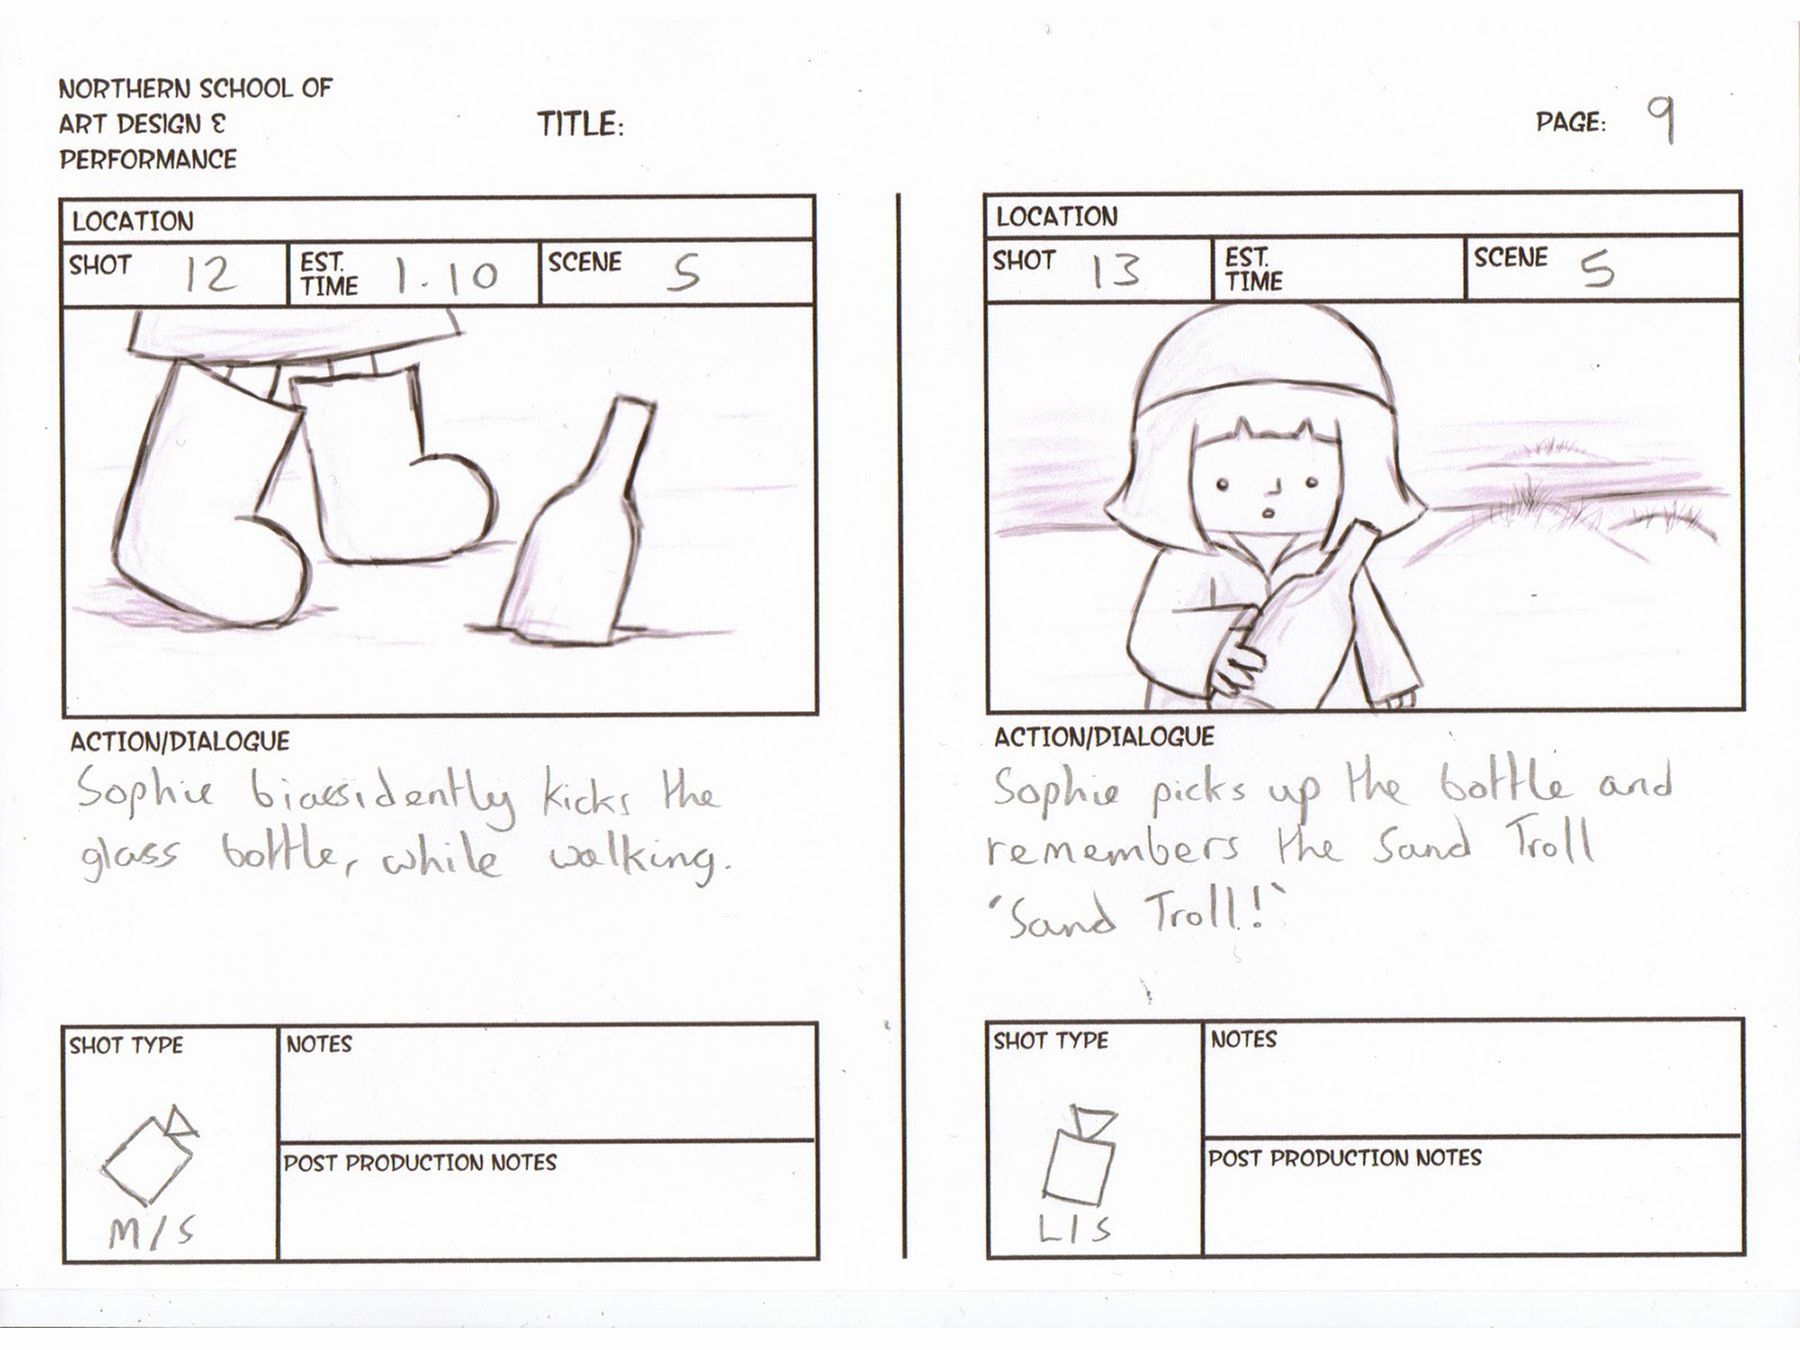 NORTHERN SCHOOL OF
ART DESIGN &
PERFORMANCE
TITLE:
PAGE: 9
LOCATION
SHOT 12
EST.
TIME 1.10
SCENE 5
ACTION/DIALOGUE
Sophie kicks the
glass bottle, while walking.
SHOT TYPE
M/S
NOTES
POST PRODUCTION NOTES
LOCATION
SHOT 13
EST.
TIME
SCENE 5
ACTION/DIALOGUE
Sophie picks up the bottle and
remembers the Sand Troll
'Sand Troll!'
SHOT TYPE
L/S
NOTES
POST PRODUCTION NOTES